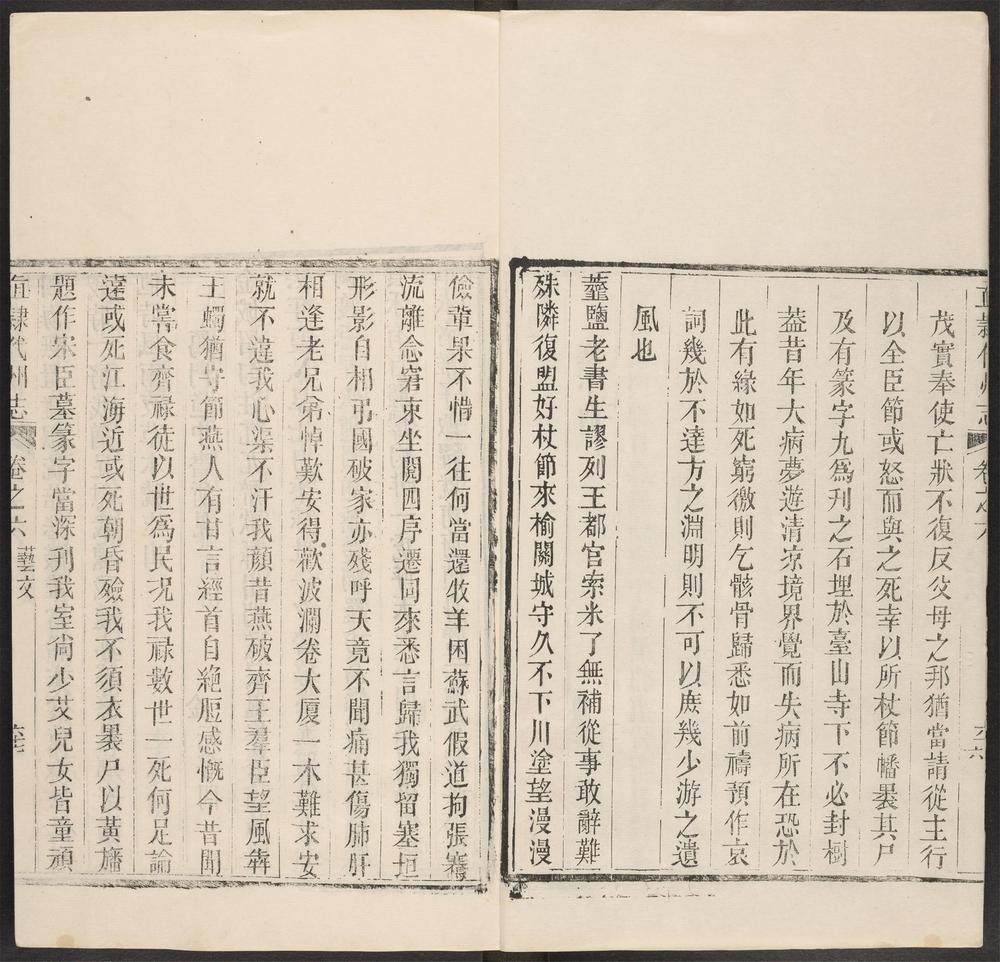 直隸代州志 卷之六 六六
茂實奉使亡狀不復反父母之邦猶當請從主行
以全臣節或怒而與之死幸以所杖節幡裹其尸
及有篆字九爲刋之石埋於臺山寺下不必封樹
葢昔年大病夢遊清凉境界覺而失病所在恐於
此有緣如死窮徼則乞骸骨歸悉如前禱預作哀
詞幾於不達方之淵明則不可以庶幾少游之遺
風也
虀鹽老書生謬列王都官索米了無補從事敢辭難
殊隣復盟好杖節來榆關城守久不下川塗望漫漫
儉輩果不惜一往何當還牧羊困蘇武假道拘張騫
流離念窘束坐閱四序遷同來悉言歸我獨留塞垣
形影自相弔國破家亦殘呼天竟不聞痛甚傷肺肝
相逢老兄弟悼歎安得歡波瀾卷大厦一木難求安
就不違我心渠不汗我顔昔燕破齊王羣臣望風犇
王蠋猶守節燕人有甘言經首自絶脰感慨今昔聞
未嘗食齊祿徒以世爲民况我祿數世一死何足論
遠或死江海近或死朝昏殮我不須衣裹尸以黃旛
題作宋臣墓篆字當深刋我室尙少艾兒女皆童頑
直隸代州志 卷之六 藝文 六七